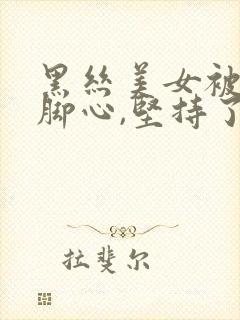 黑丝美女被
脚心,坚持了
拉斐尔